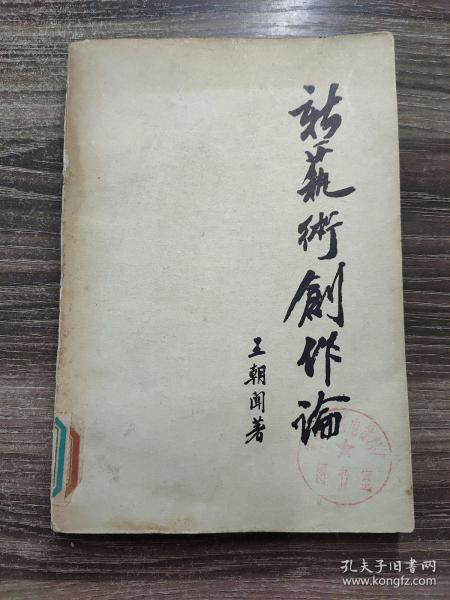 新藝術創作論
王朝聞著
图书室
孔夫子旧书网
www.kongfz.com